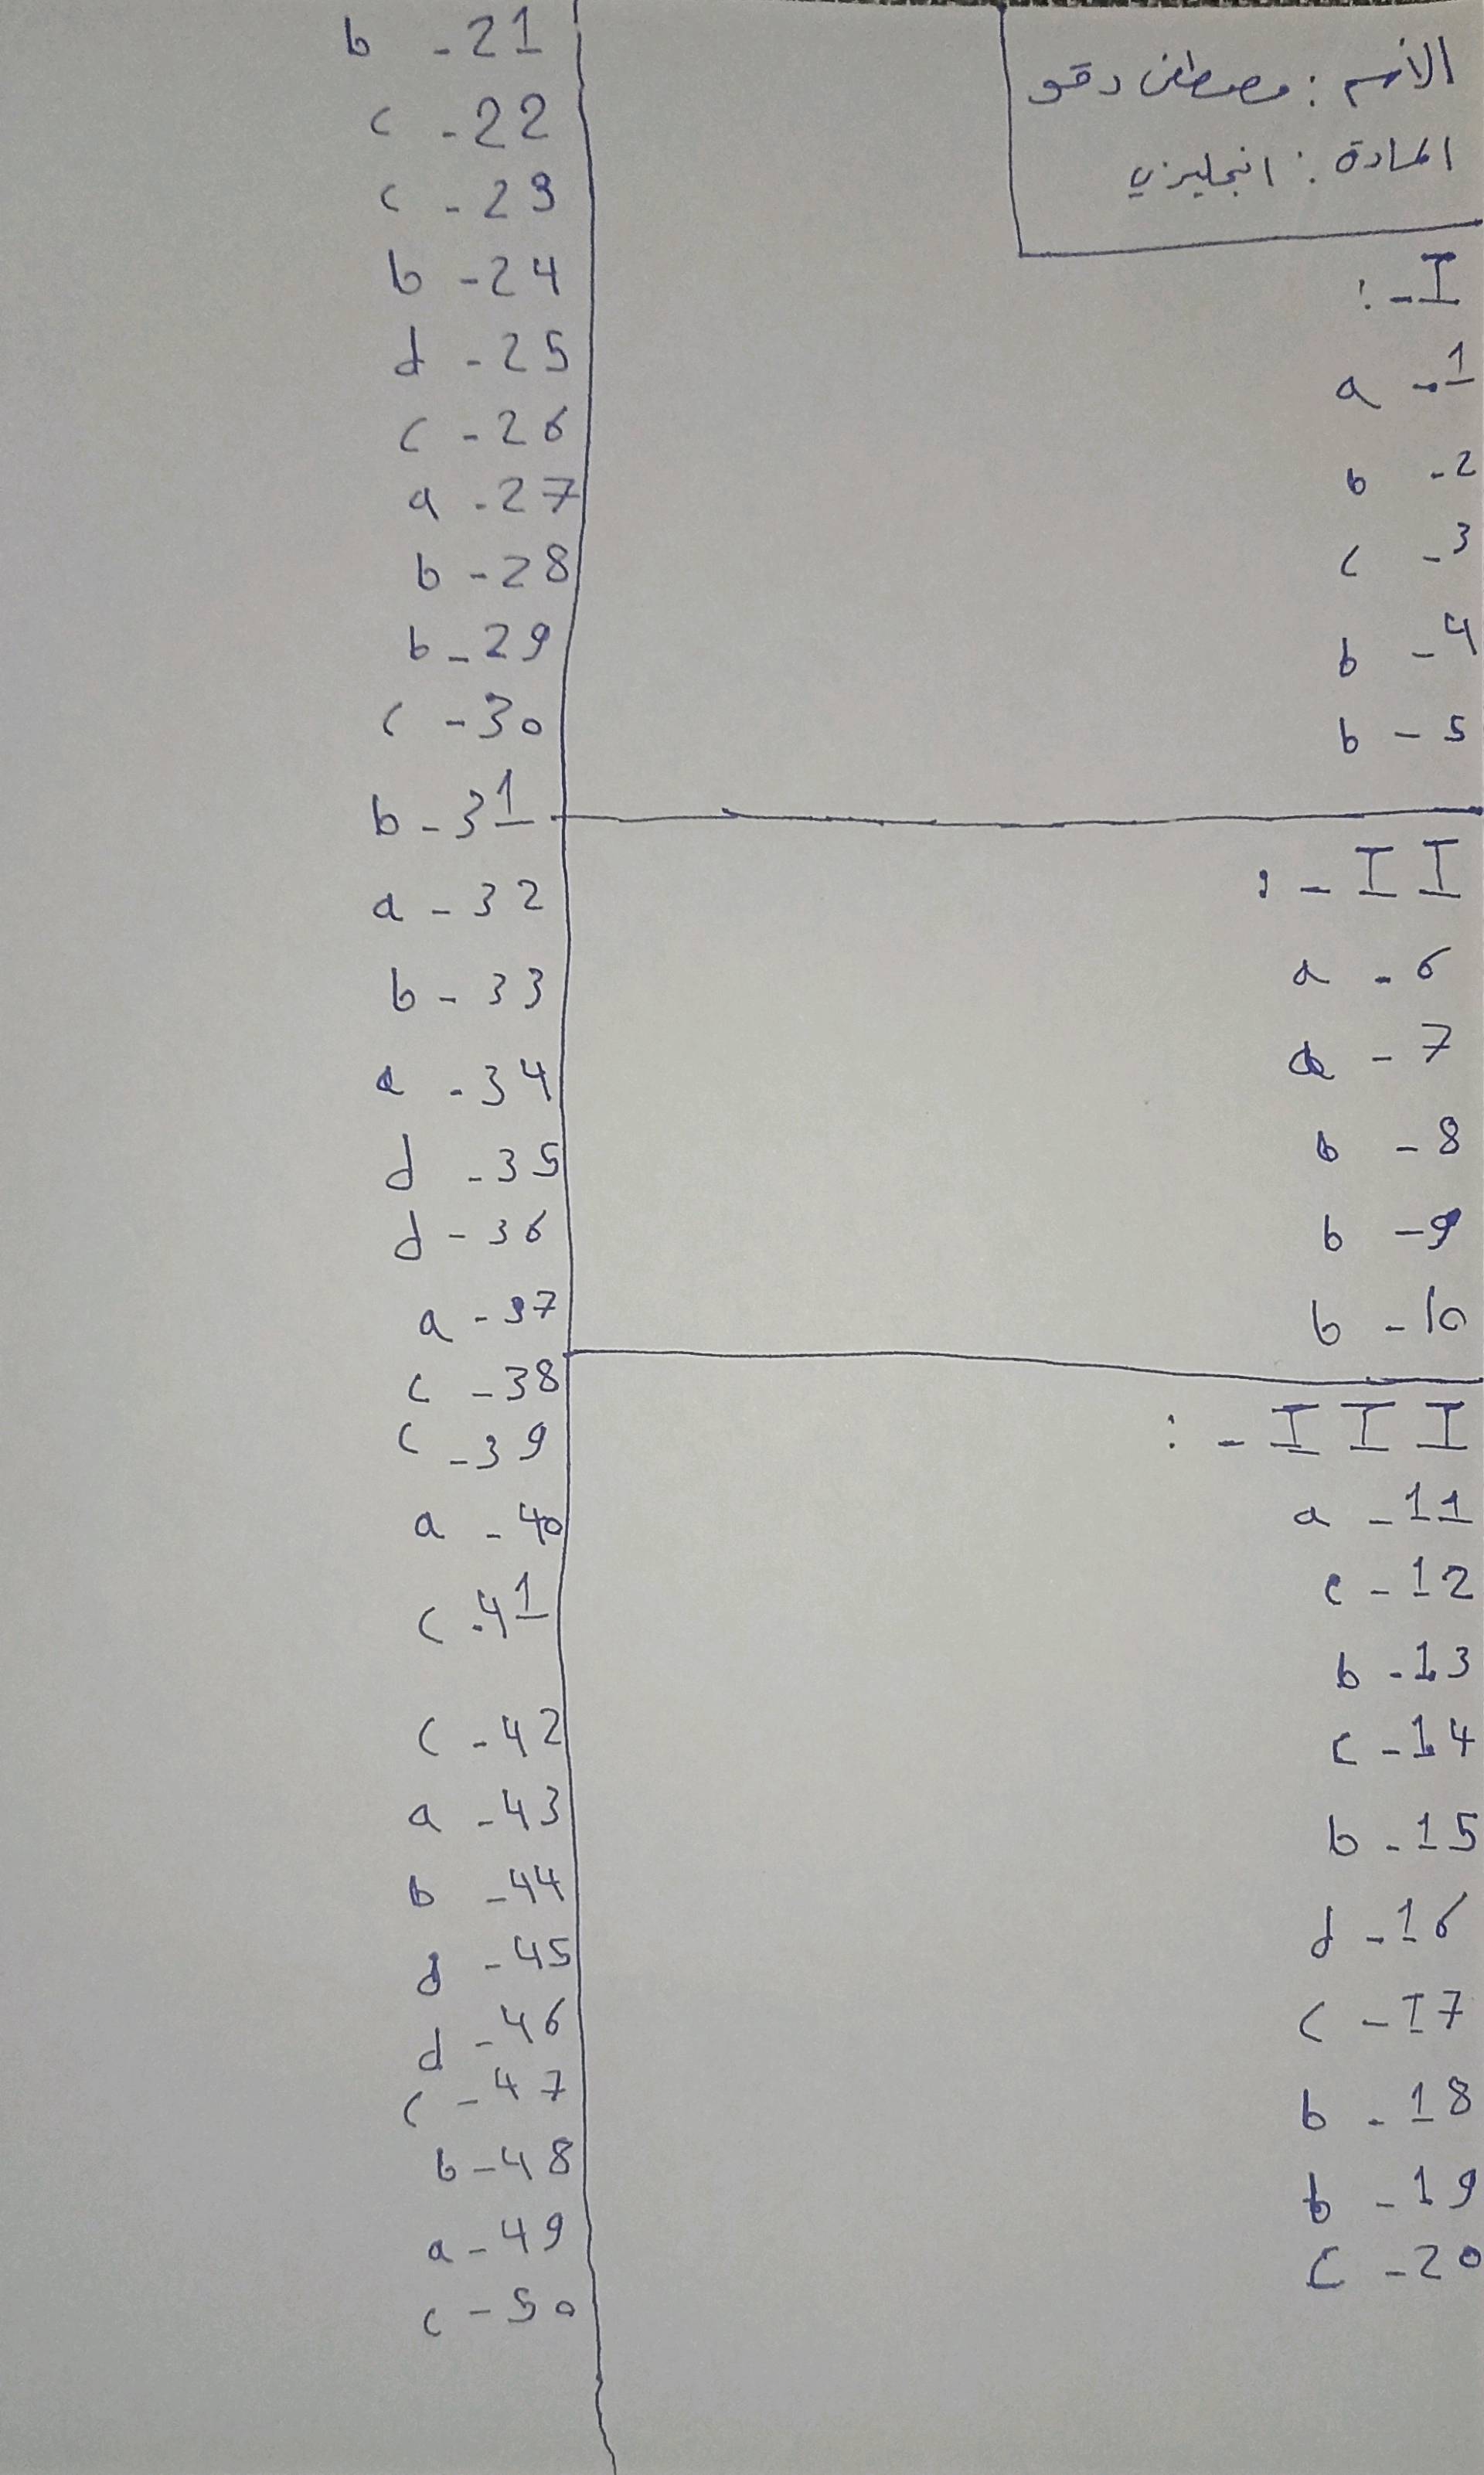 الأسم : مصطفى دقو
المادة : انجليزي
I - :
1 - a
2 - b
3 - c
4 - b
5 - b
II - :
6 - a
7 - a
8 - b
9 - b
10 - b
III - :
11 - a
12 - c
13 - b
14 - c
15 - b
16 - d
17 - c
18 - b
19 - b
20 - c
21 - b
22 - c
23 - c
24 - b
25 - d
26 - c
27 - a
28 - b
29 - b
30 - c
31 - b
32 - a
33 - b
34 - a
35 - d
36 - d
37 - a
38 - c
39 - c
40 - a
41 - c
42 - c
43 - a
44 - b
45 - d
46 - d
47 - c
48 - b
49 - a
50 - c